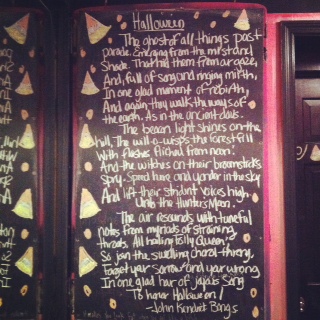 Halloween
The ghost of all things past
parade. Emerging from the mist and
Shade. That hid them from our gaze,
And, full of song and ringing mirth,
In one glad moment of rebirth,
And again they walk the ways of
the earth. As in the ancient days.
The beacon light shines on the
hill, The will-o-wisps the forest fill
With flashes filched from noon.
And the witches on their broomsticks
spry. Speed here and yonder in the sky
And lift their strident voices high,
Unto the Hunter's Moon.
The air resounds with tuneful
notes From myriads of straining
throats. All hailing Folly Queen,
So join the swelling choral throng,
Forget your sorrow and your wrong,
In one glad hour of joyous Song
To honor Halloween!
-John Kendrick Bangs